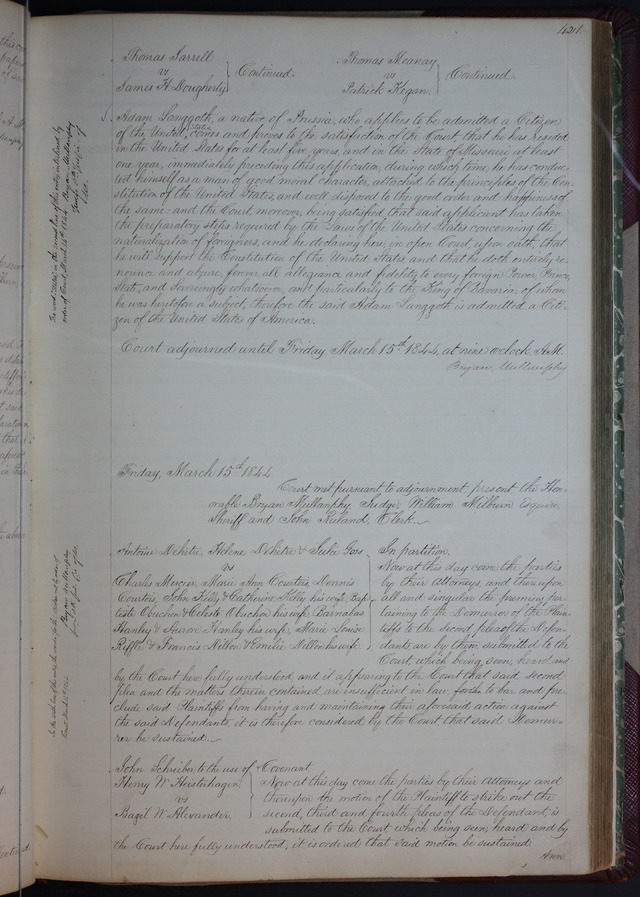 421.
Thomas Farrell
vs
James H. Dougherty
Continued.
Thomas Meanay
vs
Patrick Kegan.
Continued.
Adam Langgoth, a native of Prussia, who applies to be admitted a Citizen
of the United States comes and proves to the satisfaction of the Court, that he has resided
in the United States for at least five years, and in the State of Missouri at least
one year, immediately preceding this application, during which time, he has conduc-
ted himself as a man of good moral character, attached to the principles of the Con-
stitution of the United States, and well disposed to the good order and happiness of
the same: and the Court moreover, being satisfied that said applicant has taken
the preparatory steps required by the Laws of the United States concerning the
naturalization of foreigners, and he declaring here, in open Court upon oath, that
he will support the Constitution of the United States and that he doth entirely re-
nounce and abjure, forever, all allegiance and fidelity to every foreign Power, Prince,
State, and Sovereignty whatsoever, and particularly to the King of Bavaria, of whom
he was heretofore a subject, therefore the said Adam Langgoth is admitted a Citi-
zen of the United States of America.
Court adjourned until Friday, March 15th 1844, at nine o'clock A.M.
Bryan Mullanphy
Friday, March 15th 1844
Court met pursuant to adjournment present the Hon-
orable Bryan Mullanphy Judge, William Milburn Esquire,
Sheriff and John Ruland, Clerk.
Antoine Dehetre, Helene Dehetre & Julie Gors
vs
Charles Mercier, Marie Ann Courtois, Dennis
Courtois, John Kelly & Catherine Kelly his wife, Bap-
tiste Obuchon & Celeste Obuchon his wife, Barnabas
Hanley & Hanley his wife, Marie Louise
Riffle & Francis Delton & Emilie Delton his wife.
In partition.
Now at this day come the parties
by their Attorneys, and thereupon
all and singular the premises per-
taining to the Demurrer of the Plain-
tiffs to the second plea of the Defen-
dants are by them submitted to the
Court, which being seen, heard and
by the Court here fully understood and it appearing to the Court that said second
plea and the matters therein contained are insufficient in law for to bar and pre-
clude said Plaintiffs from having and maintaining their aforesaid action against
the said Defendants, it is therefore considered by the Court that said Demur-
rer be sustained.
John Schreiber to the use of
Henry W. Heisterhagen
vs
Bazil W. Alexander.
Covenant
Now at this day come the parties by their Attorneys and
thereupon the motion of the Plaintiff to strike out the
second, third and fourth pleas of the Defendant, is
submitted to the Court, which being seen, heard and by
the Court here fully understood, it is ordered that said motion be sustained.
Ann